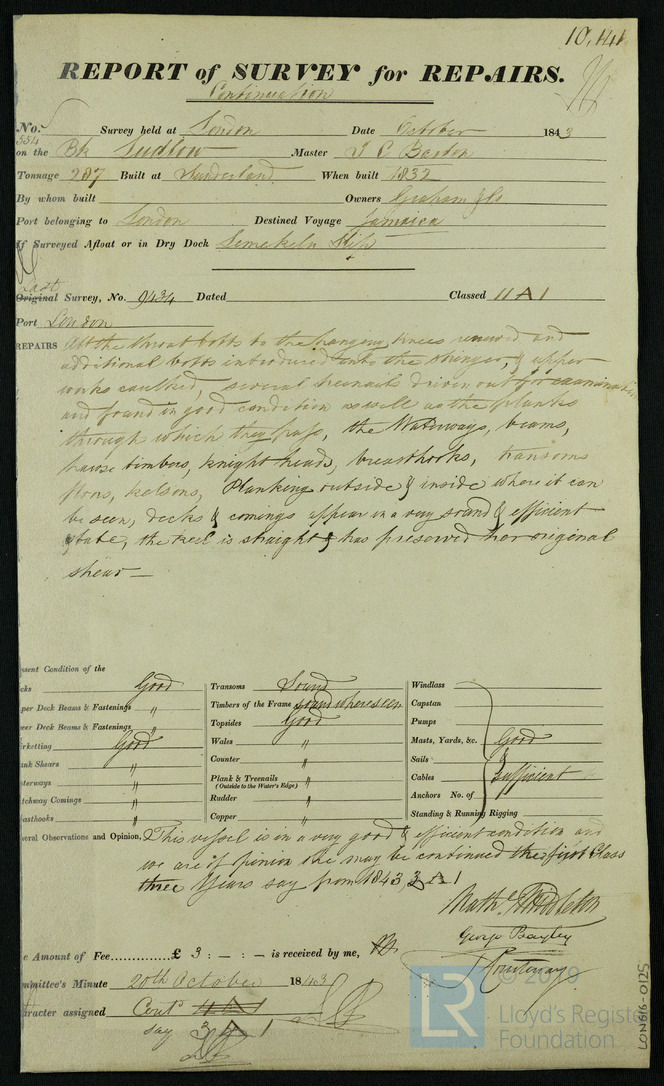 10,141
REPORT of SURVEY for REPAIRS.
Continuation
No. 554 Survey held at London Date October 1843
on the Bk Ludlow Master J C Barton
Tonnage 297 Built at Sunderland When built 1832
By whom built Owners Graham & Co
Port belonging to London Destined Voyage Jamaica
If Surveyed Afloat or in Dry Dock Limekiln Slip
Last
Original Survey, No. 9434 Dated Classed 11 A 1
Port London
REPAIRS All the throat bolts to the hanging knees renewed and
additional bolts introduced into the stringer, & upper
works caulked, several treenails driven out for examination
and found in good condition as well as the planks
through which they pass, the Waterways, beams,
hawse timbers, knight heads, breasthooks, transoms
floors, kelsons, Planking outside & inside where it can
be seen, decks & comings appear in a very sound & efficient
state, the keel is straight & has preserved her original
shear —
sent Condition of the
cks Good Transoms Sound Windlass
per Deck Beams & Fastenings " Timbers of the Frame sound where seen Capstan
wer Deck Beams & Fastenings " Topsides Good Pumps
irketting Good Wales " Masts, Yards, &c. Good
ank Shears " Counter " Sails &
terways " Plank & Treenails " Cables sufficient
(Outside to the Water's Edge)
tchway Comings " Rudder " Anchors No. of
easthooks " Copper " Standing & Running Rigging
eral Observations and Opinion, This vessel is in a very good & efficient condition and
we are of opinion she may be continued the first Class
three Years say from 1843, 3 A 1
Nathl Middleton
George Bayley
Courtenay
e Amount of Fee £ 3 : – : – is received by me,
mmittee's Minute 20th October 1843
aracter assigned Contd 11 A 1
say 3 A 1
© 2019
LR
Lloyd's Register
Foundation
LON616-0125